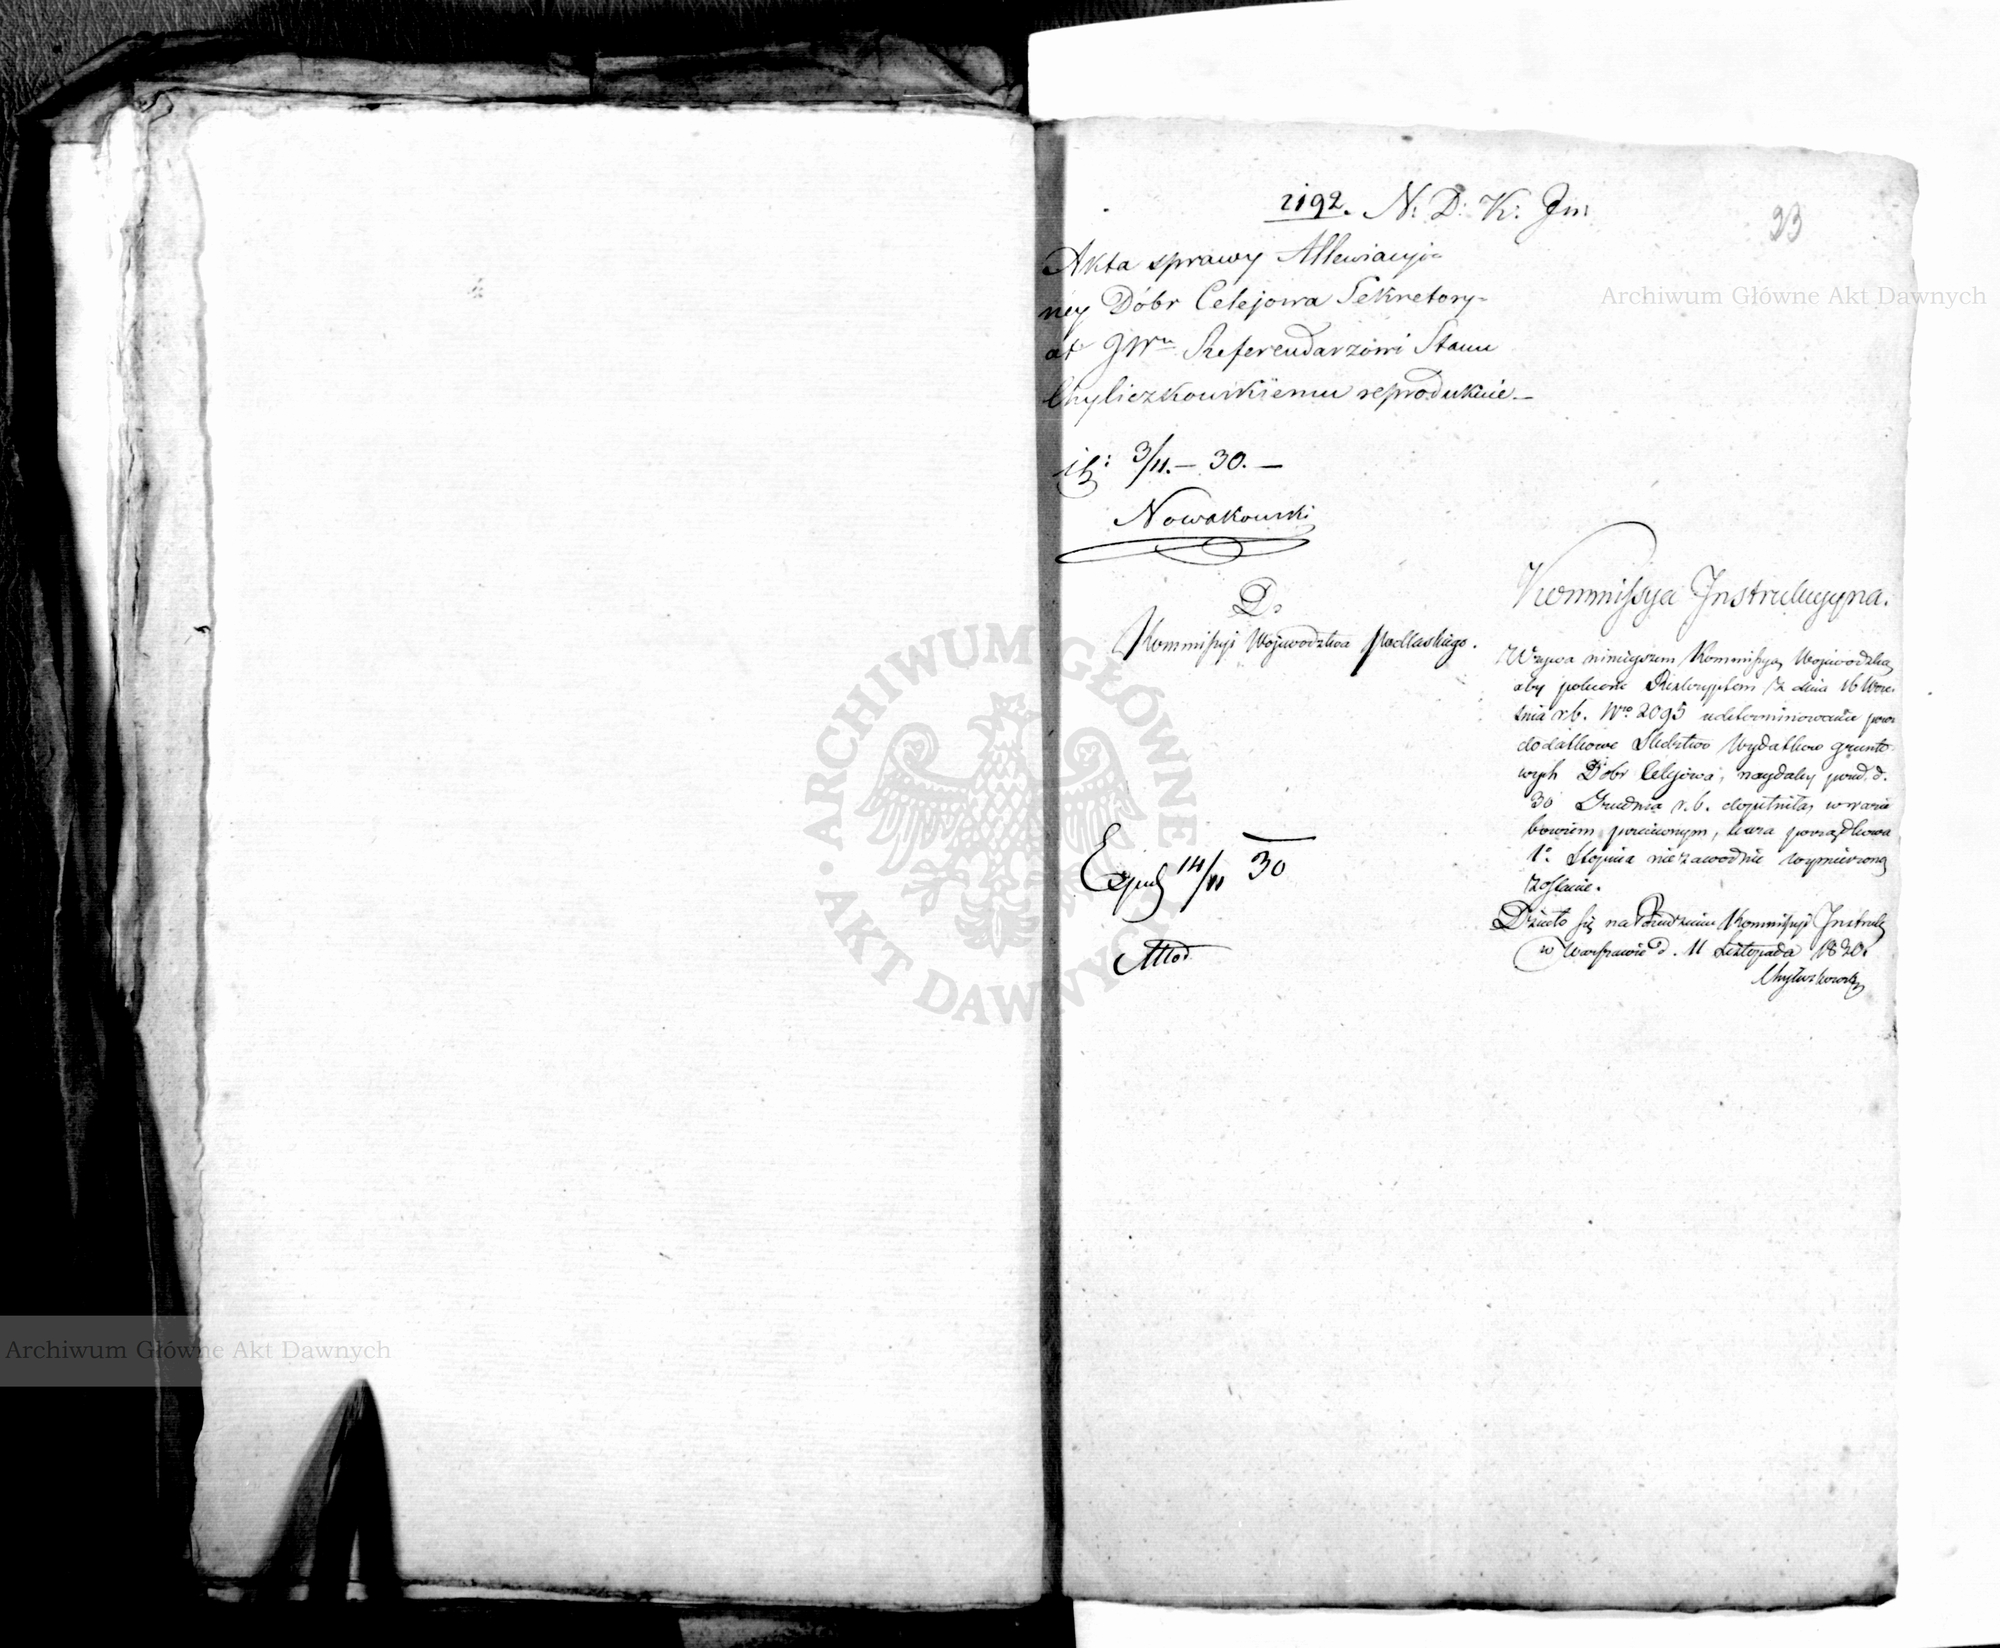 2192. N: D: K: Ins:
23
Akta sprawy Allewiacyi-
ney Dóbr Celejowa Sekretory-
at JWu Referendarzowi Stanu
Chyliczkowskiemu reprodukuie.—
3/11.— 30.—
Nowakowski
Do
Kommissyi Województwa Podlaskiego.
Exped 14/11 30
Kommissya Instrukcyyna.
Wzywa ninieyszem Kommissyą Wojewódzką
aby polecone Reskryptem z dnia 16 Wrze-
śnia r.b. Nro 2095 udeterminowanie
dodatkowe Śledztwo Wydatkow grunto-
wych Dóbr Celejowa, naydaley pod d.
30 Grudnia r.b. dopełniła, w razie
bowiem przeciwnym, kara porządkowa
1o. Stopnia niezawodnie wymierzoną
zostanie.
Działo się na Posiedzeniu Kommissyi Instruk
w Warszawie d. 11 Listopada 1830.
Chyliczkowski
Archiwum Główne Akt Dawnych
ARCHIWUM GŁÓWNE AKT DAWNYCH
Archiwum Główne Akt Dawnych